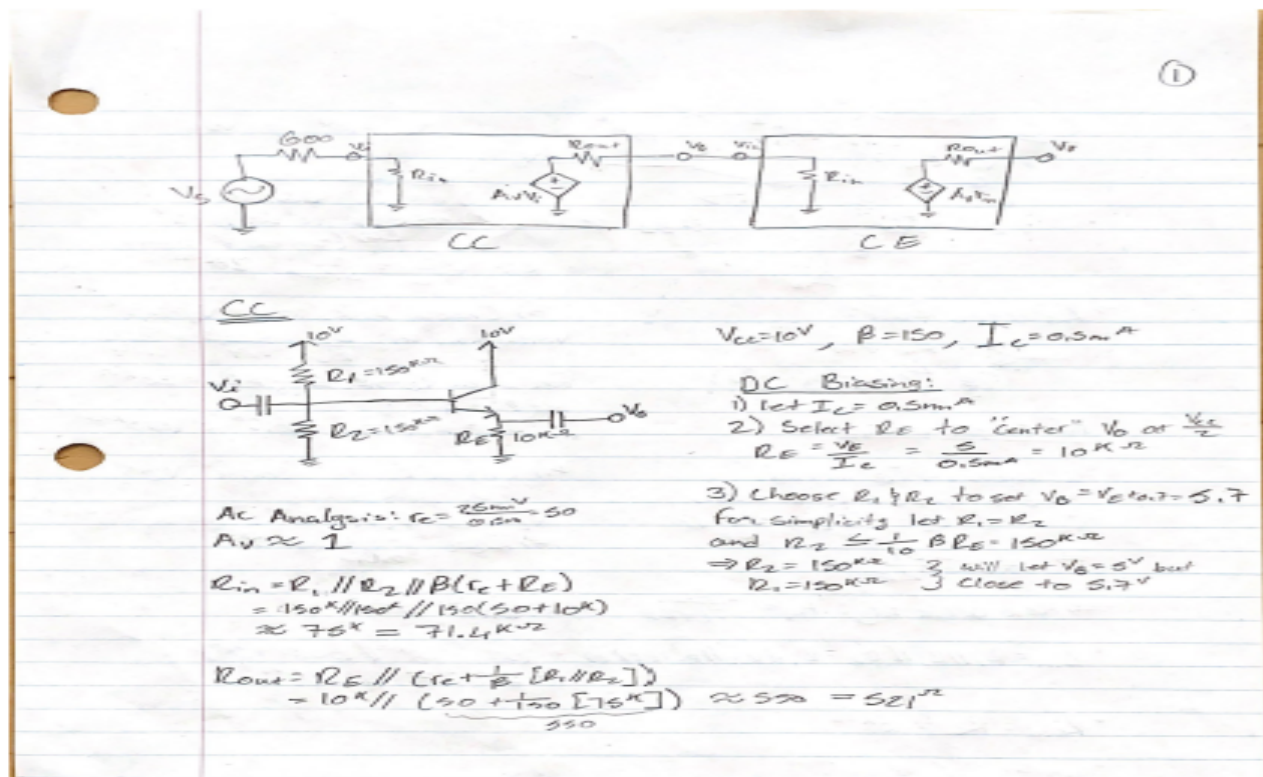 ①
600
Vi
Rout
Vo
Vin
Rout
Vo
Vs
Rin
AvVi
Rin
AvVin
CC
CE
CC
10V
10V
Vi
R1=150KΩ
R2=150KΩ
RE
10KΩ
Vo
Vcc=10V, β=150, Ic=0.5mA
DC Biasing:
1) let Ic=0.5mA
2) Select RE to "center" Vo at Vcc/2
RE = VE/Ic = 5/0.5mA = 10KΩ
3) Choose R1 & R2 to set VB=VE+0.7=5.7
For simplicity let R1=R2
and R2 ≤ 1/10 β RE=150KΩ
⇒ R2=150KΩ } will let VB=5V but
R1=150KΩ } close to 5.7V
Ac Analysis: re=25mV/0.5m=50
Av ≈ 1
Rin=R1//R2//β(re+RE)
= 150K//150K//150(50+10K)
≈ 75K = 71.4KΩ
Rout=RE//(re+1/β[R1//R2])
= 10K//(50+1/150[75K]) ≈ 550 = 521Ω
550